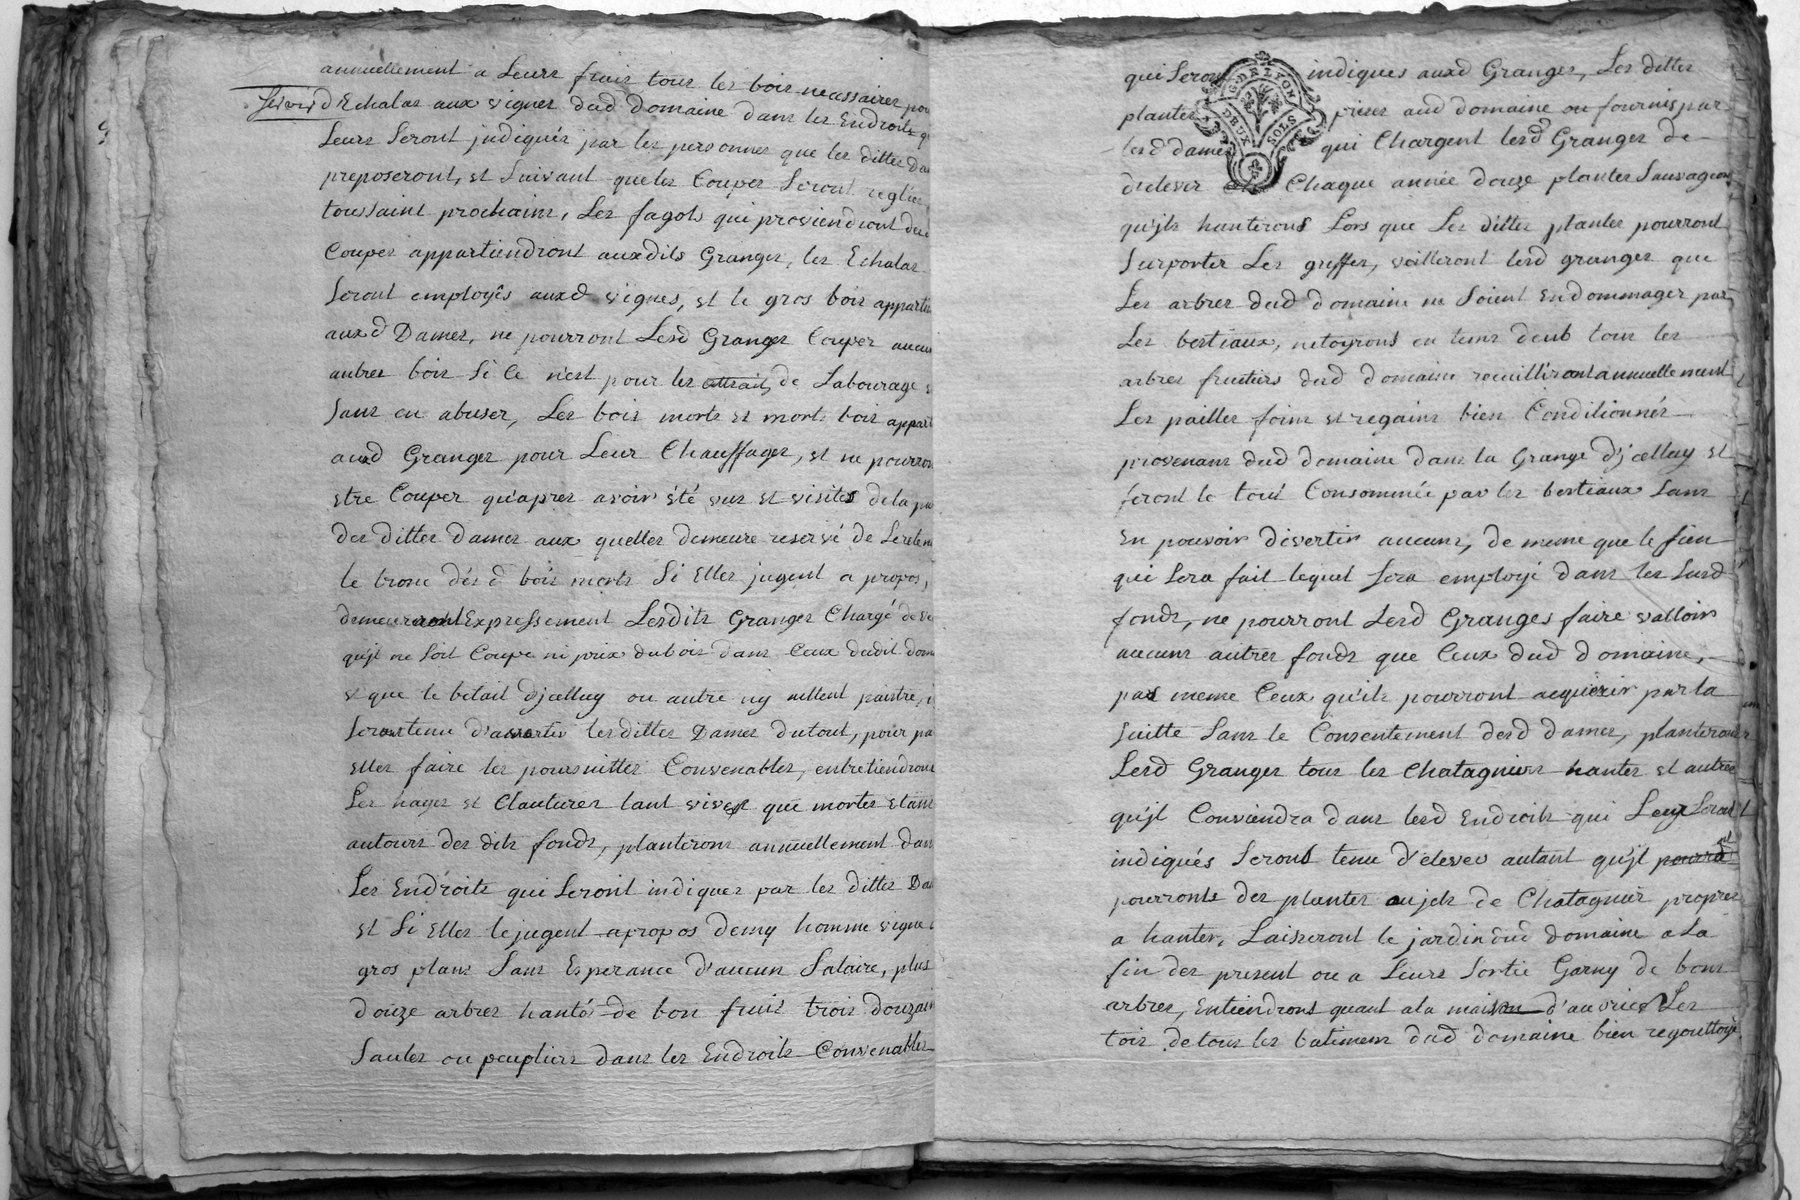 annuellement a Leurs frais tous les bois necessaires pou
servir d Echalas aux vignes dud domaine dans les Endroits q
Leurs Seront judiqués par les personnes que les dittes da
preposeront, et Suivant que les Coupes Seront reglées
toussaint prochains, Les fagots qui proviendront de
Coupes appartiendront auxdits Granger, les Echalas
Seront employés auxd vignes, et le gros bois apparti
auxd Dames, ne pourront Lesd Granger Couper aucun
autres bois Si Ce n'est pour les attrait de Labourage
Sans en abuser, Les bois morts et morts bois appart
aud Granger pour Leur Chauffages, et ne pourron
etre Couper qu'apres avoir été vus et visités de la pa
des dittes dames aux quelles demeure reservé de Se reteni
le tronc des d bois morts Si Elles jugent a propos,
demeureront Expressement Lesdits Granger Chargé de ve
qu'jl ne Soit Coupé ni prix du bois dans Ceux dudit dom
et que le betail d'jcelluy ou autre ny aillent paistre,
Seront tenu d'avertir les dittes Dames du tout, pour pa
elles faire les poursuittes Convenables, entretiendront
Les hayes et Clautures tant vives que mortes etant
autours des dits fonds, planterons annuellement dans
Les Endroits qui Seront indiques par les dittes Da
et Si Elles le jugent apropos demy homme vigne
gros plans Sans Esperance d'aucun Salaire, plus
douze arbres hantés de bon fruit trois douzai
Saules ou peupliers dans les Endroits Convenables
qui Seront indiques auxd Granges, Les dittes
plantes prises aud domaine ou fournis par
lesd dames qui Chargent lesd Granges de
d'elever Chaque année douze plantes Sauvageon
qu'jls hanterons Lors que Les dittes plantes pourront
Surporter Les greffes, veilleront lesd granger que
Les arbres dud domaine ne Soient Endommager par
Les bestiaux, netoyrons en tems deub tous les
arbres fruitiers dud domaine recuilliront annuellement
Les pailles foins et regains bien Conditionnés
provenans dud domaine dans la Grange d'jcelluy et
feront le tout Consommée par les bestiaux Sans
En pouvoir divertir aucuns, de meme que le fien
qui Sera fait lequel Sera employé dans les Susd
fonds, ne pourront Lesd Granges faire valloir
aucuns autres fonds que Ceux dud domaine,
pas meme Ceux qu'ils pourront acquerir par la
Suitte Sans le Consentement desd dames, planterons
Lesd Granger tous les Chatagniers hantes et autres
qu'jl Conviendra dans lesd Endroits qui Leur Seront
indiqués Seront tenu d'elever autant qu'jl
pourronts des plantes sujets de Chatagnier propres
a hanter, Laisseront le jardin dud domaine a La
fin des present ou a Leurs Sortie Garny de bons
arbres, Entiendrons quant a la maison d'auvrier Les
tois de tous les batimens dud domaine bien regouttoyé
G. DE LYON
DEUX SOLS